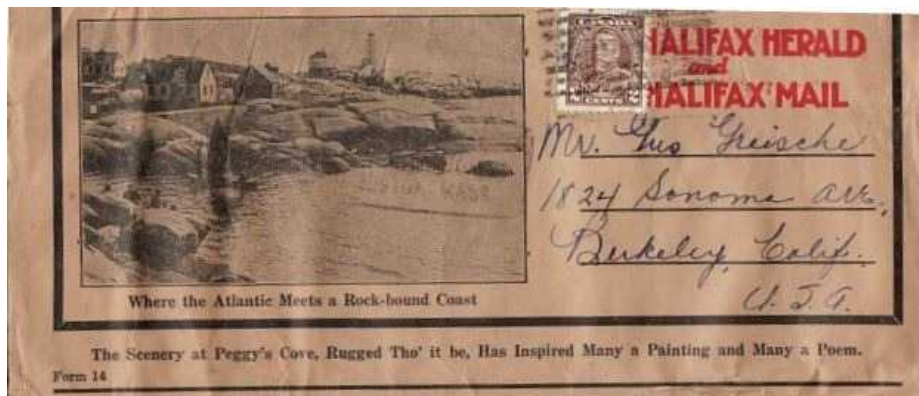 CANADA
2 CENTS 2
HALIFAX HERALD
and
HALIFAX MAIL
Mr. Gus Greische
1824 Sonoma Ave.,
Berkeley, Calif.
U.S.A.
Where the Atlantic Meets a Rock-bound Coast
The Scenery at Peggy's Cove, Rugged Tho' it be, Has Inspired Many a Painting and Many a Poem.
Form 14